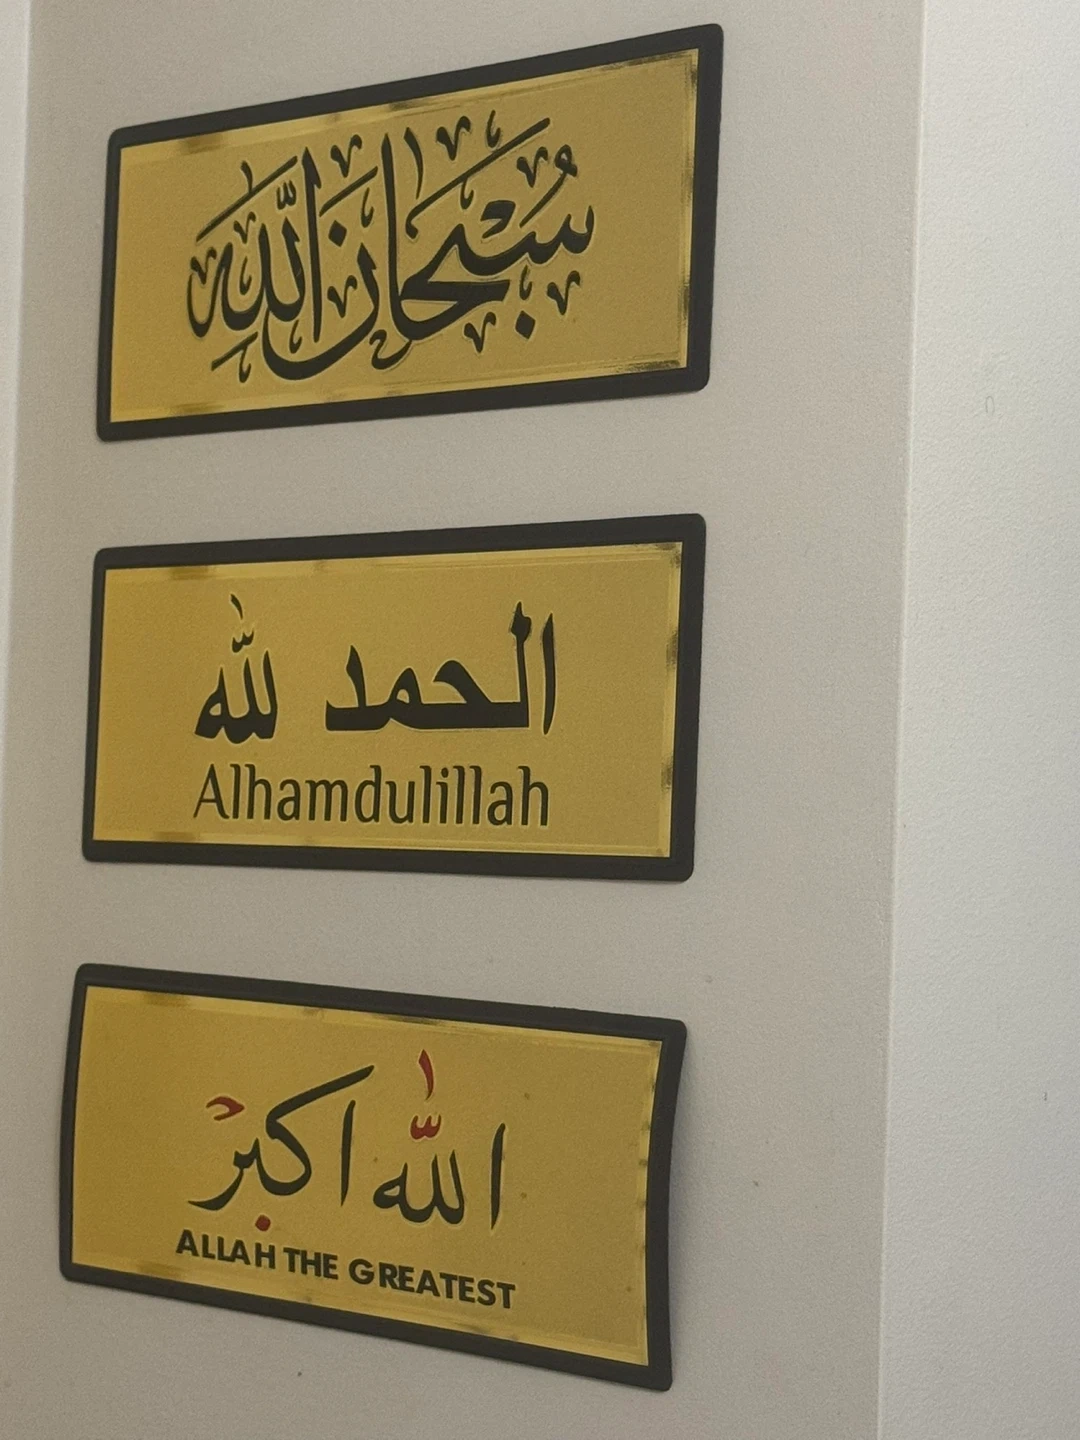 سُبْحَانَ اللَّهِ
الحمد لله
Alhamdulillah
الله اكبر
ALLAH THE GREATEST